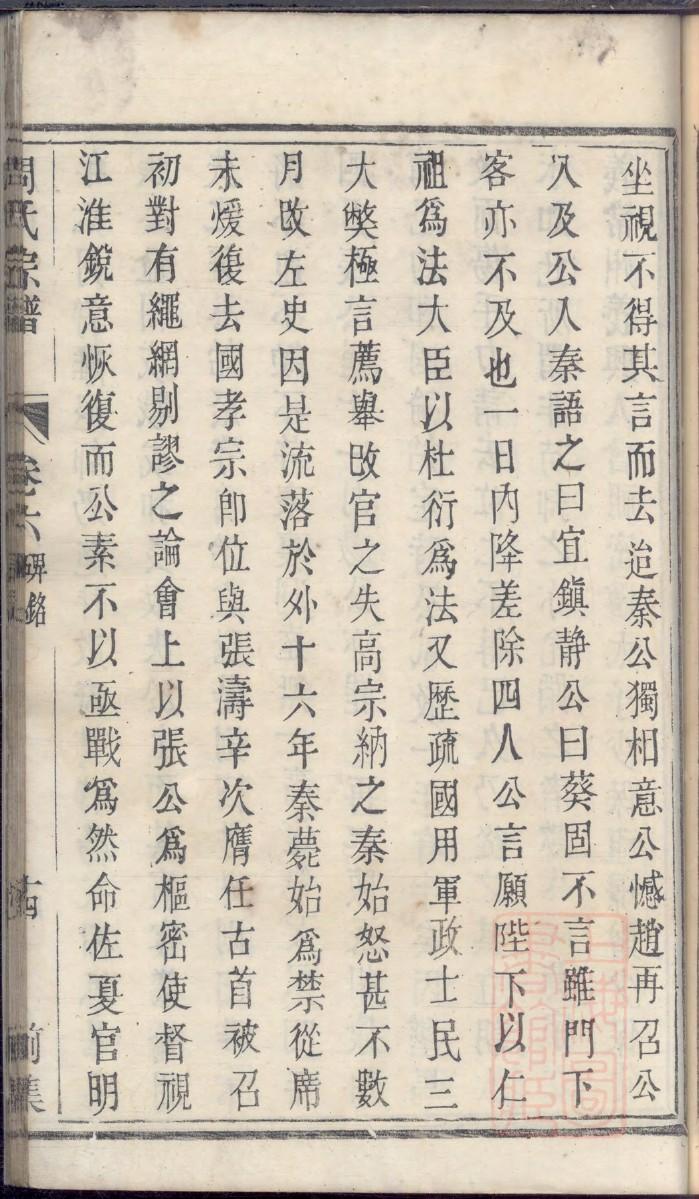 坐視不得其言而去迨秦公獨相意公憾趙再召公
入及公入秦語之曰宜鎮静公曰葵固不言雖門下
客亦不及也一日內降差除四人公言願陛下以仁
祖爲法大臣以杜衍爲法又歷疏國用軍政士民三
大獘極言薦舉改官之失高宗納之秦始怒甚不數
月改左史因是流落於外十六年秦薨始爲禁從席
未煖復去國孝宗卽位與張濤辛次膺任古首被召
初對有繩網剔謬之論會上以張公爲樞密使督視
江淮銳意恢復而公素不以亟戰爲然命佐夏官明
周氏宗譜
卷六
碑銘
十四
前集